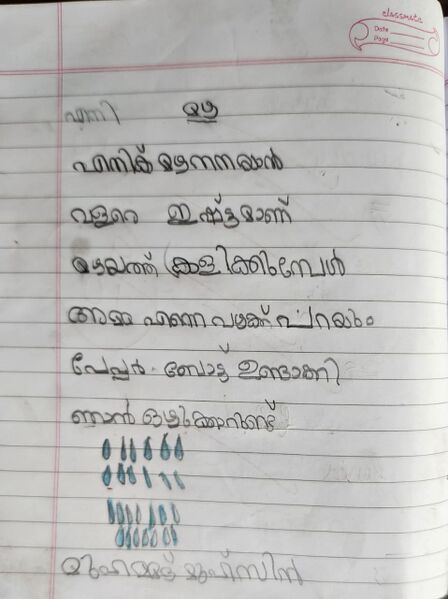 classmate
Date
Page
എനി മഴ
എനിക് മഴനനയാൻ
വളരെ ഇഷ്ട്ടമാണ്
മഴയത്ത് കളിക്കിമ്പേൾ
അമ്മ എന്നെ വഴക്ക് പറയും
പേപ്പർ ബോട്ട് ഉണ്ടാക്കി
ഞാൻ ഒഴുക്കാറുണ്ട്
മുഹമ്മദ് മുഹ്സിൻ